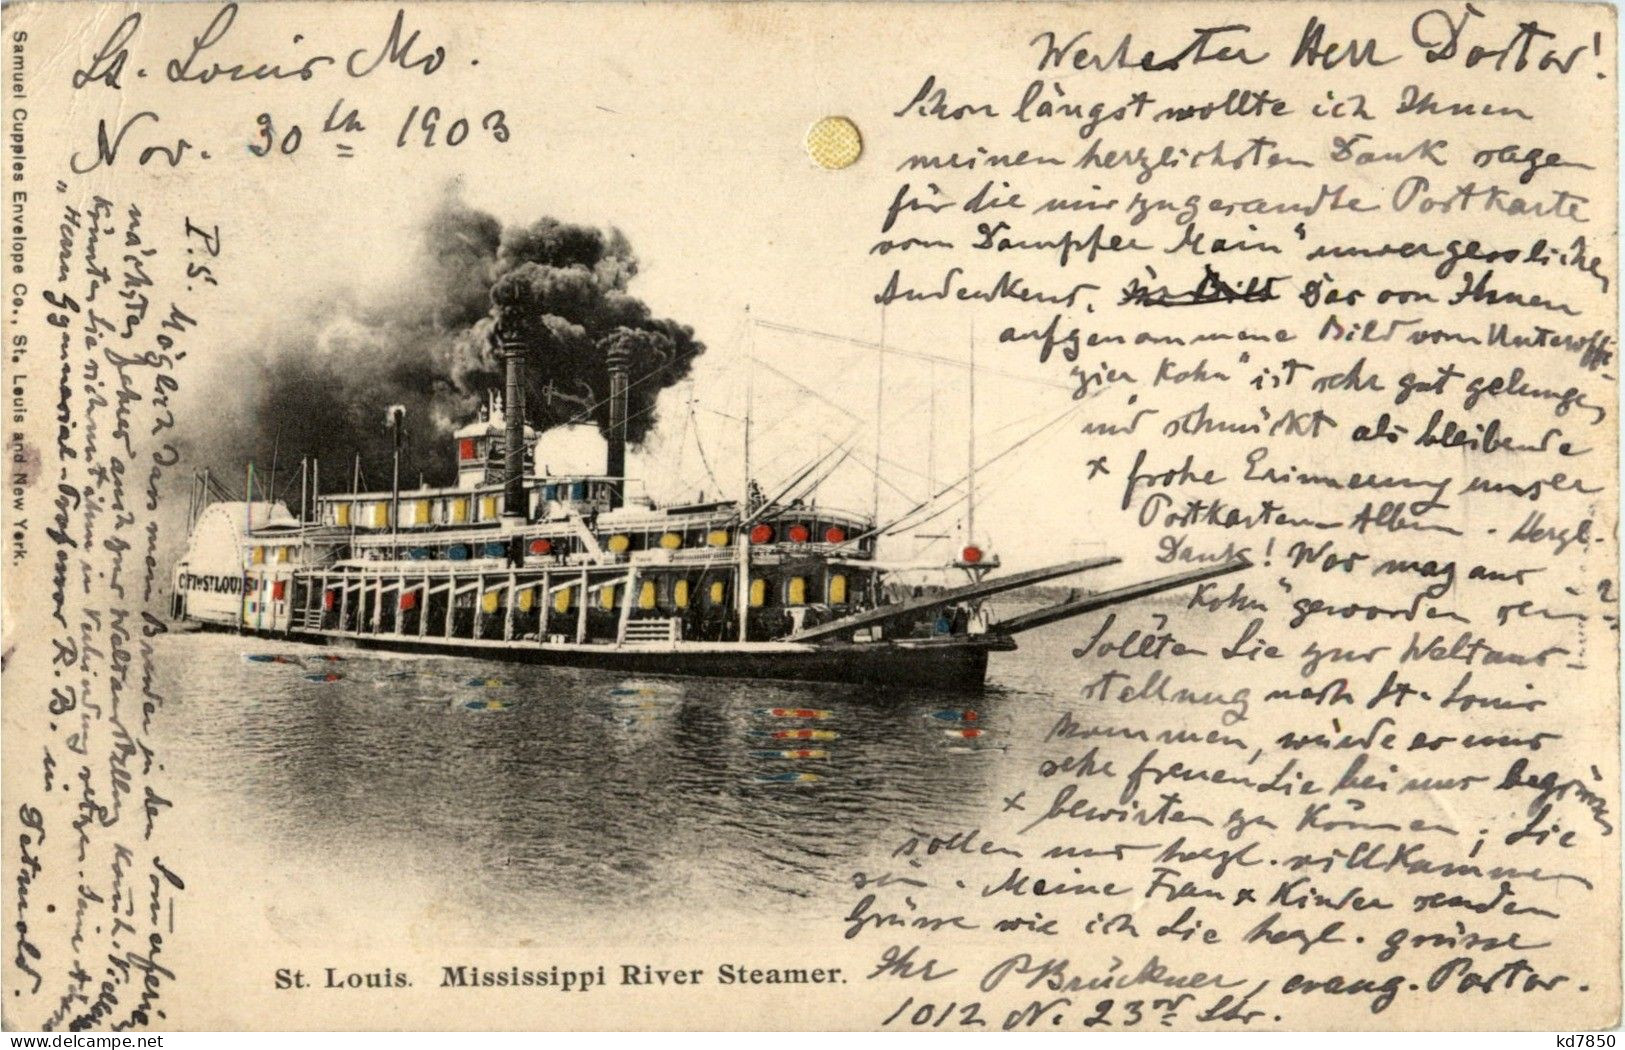 St. Louis Mo.
Nov. 30th 1903
Werthester Herr Doktor!
Schon längst wollte ich Ihnen
meinen herzlichsten Dank sagen
für die mir zugesandte Postkarte
vom Dampfer Main" unvergesslichen
Andenkens. Das von Ihnen
aufgenommene Bild vom Unteroffi-
zier Kohn" ist sehr gut gelungen
und schmückt als bleibende
x frohe Erinnerung unser
Postkarten-Album. Hergl.
Dank! Was mag aus
Kohn" geworden sein?
Sollten Sie zur Weltaus-
stellung nach St. Louis
kommen, würde es uns
sehr freuen Sie bei uns begrüssen
x bewirten zu können; Sie
sollen uns hergl. willkommen
sein. Meine Frau x Kinder senden
Grüsse wie ich Sie hergl. grüsse
Ihr PBrückner, evang. Pastor.
1012 N. 23rd Str.
P.S. Möglich dass mein Bruder in den Sommerferien
nächstes Jahr auch zur Weltausstellung kommt. Vielleicht
könnten Sie sich mit ihm in Verbindung setzen. Seine
"Herrn Gymnasial-Professor R. B. in
Detmold.
CITY OF ST LOUIS
St. Louis. Mississippi River Steamer.
Samuel Cupples Envelope Co., St. Louis and New York.
kd7850